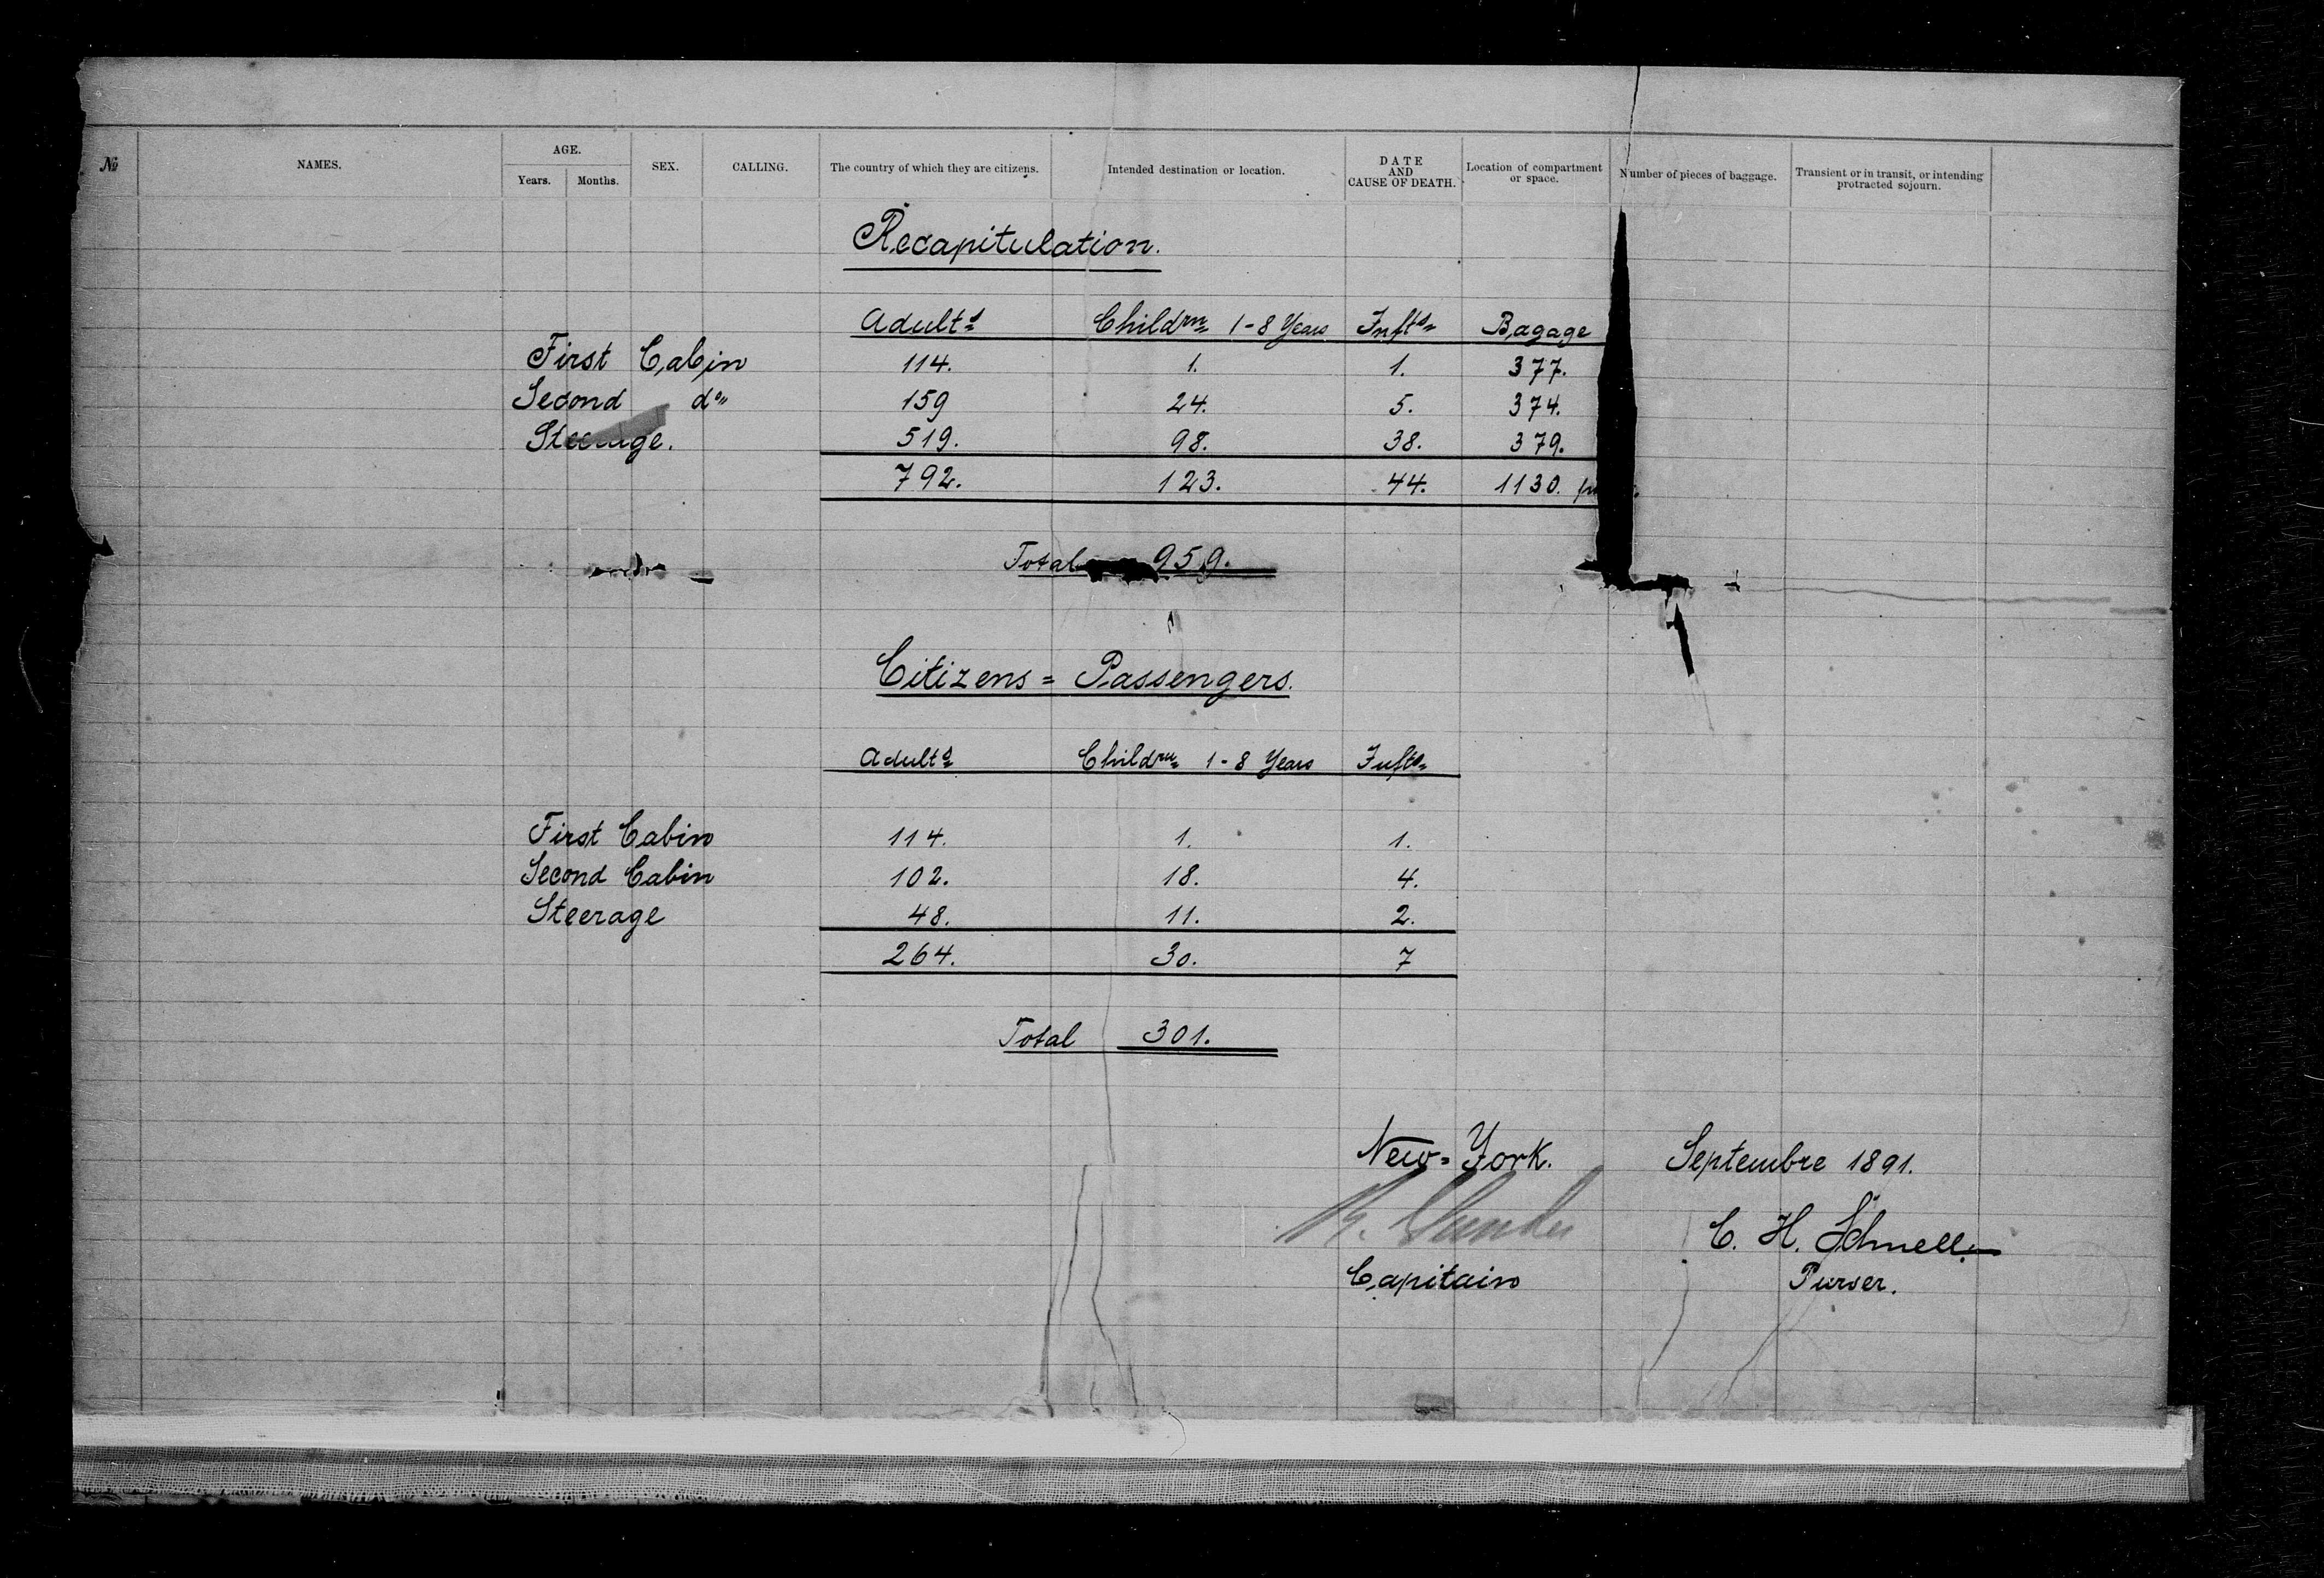 № NAMES. AGE. Years. Months. SEX. CALLING. The country of which they are citizens. Intended destination or location. DATE AND CAUSE OF DEATH. Location of compartment or space. Number of pieces of baggage. Transient or in transit, or intending protracted sojourn.
Recapitulation.
Adults Childrn 1-8 Years Infts Bagage
First Cabin 114. 1. 1. 377.
Second do 159 24. 5. 374.
Steerage. 519. 98. 38. 379.
792. 123. 44. 1130.
Total 959.
Citizens = Passengers.
Adults Childrn 1-8 Years Infts
First Cabin 114. 1. 1.
Second Cabin 102. 18. 4.
Steerage 48. 11. 2.
264. 30. 7
Total 301.
New=York. Septembre 1891.
C. H. Schnell.
Capitain Purser.